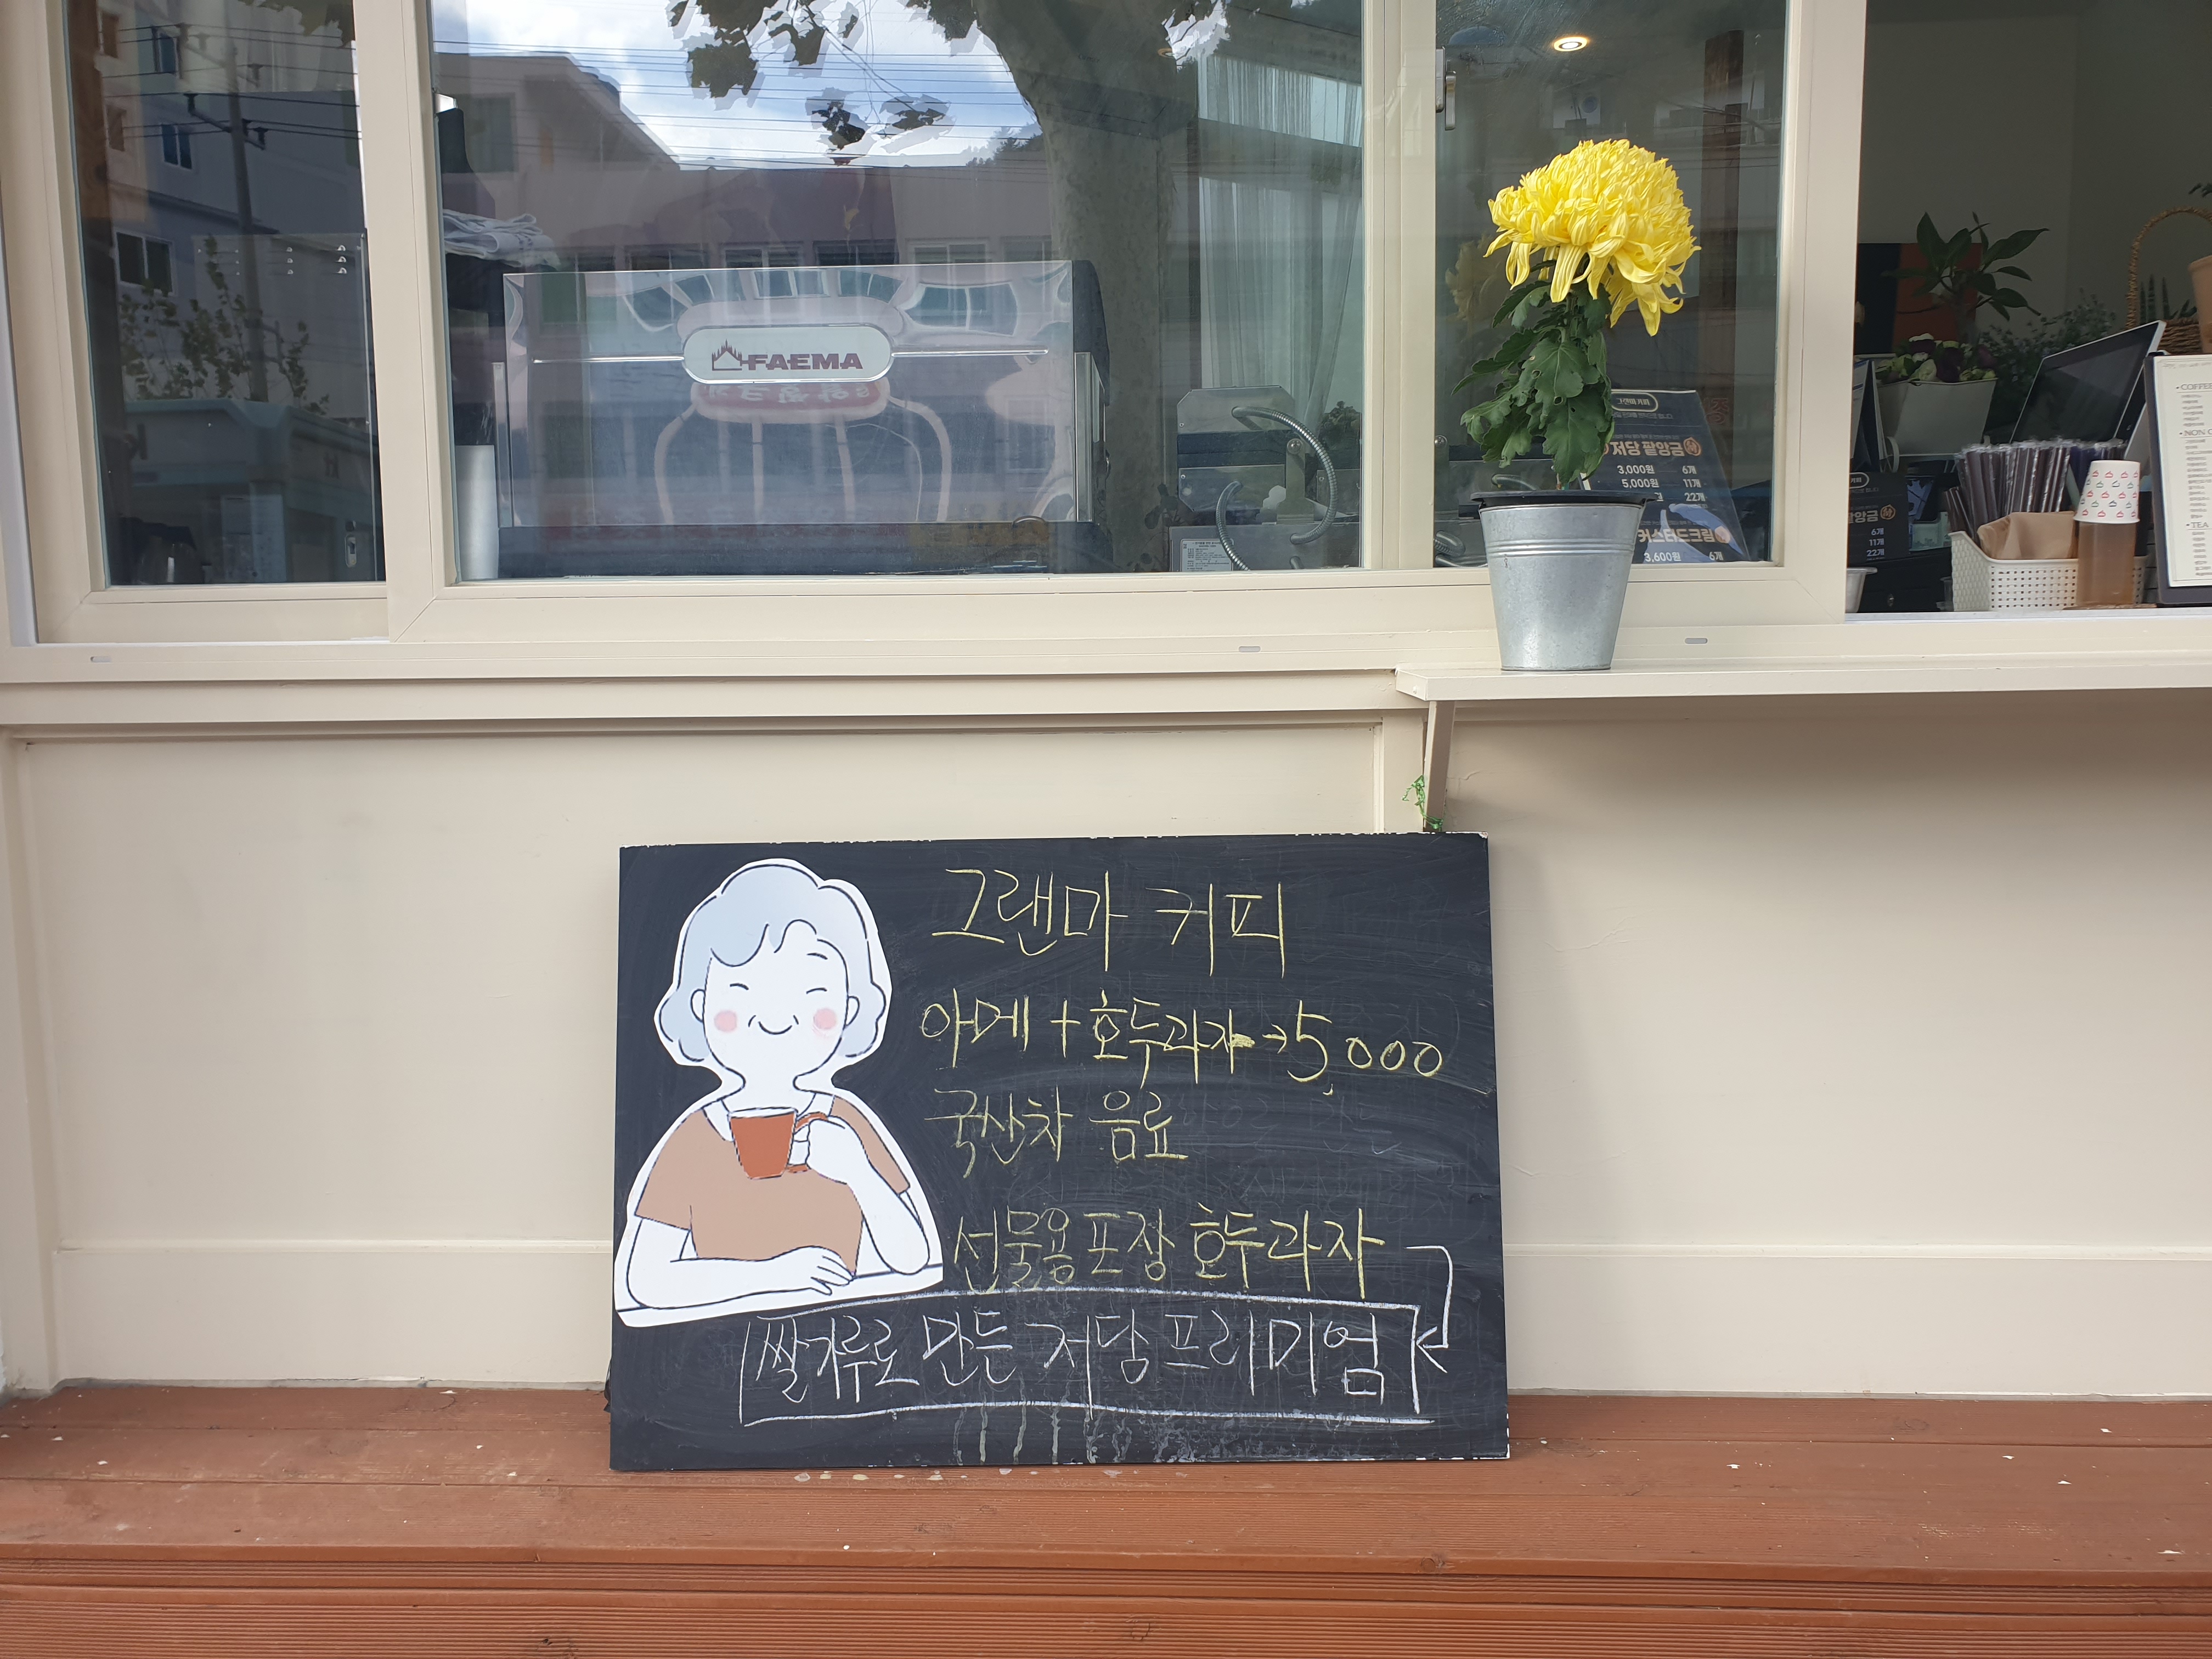 FAEMA
저당 팥앙금
3,000원 6개
5,000원 11개
22개
커스터드크림
3,600원 6개
팥앙금
6개
11개
22개
COFFEE
TEA
그랜마 커피
아메 + 호두과자→5,000
국산차 음료
선물용 포장 호두과자
쌀가루로 만든 저당 프리미엄